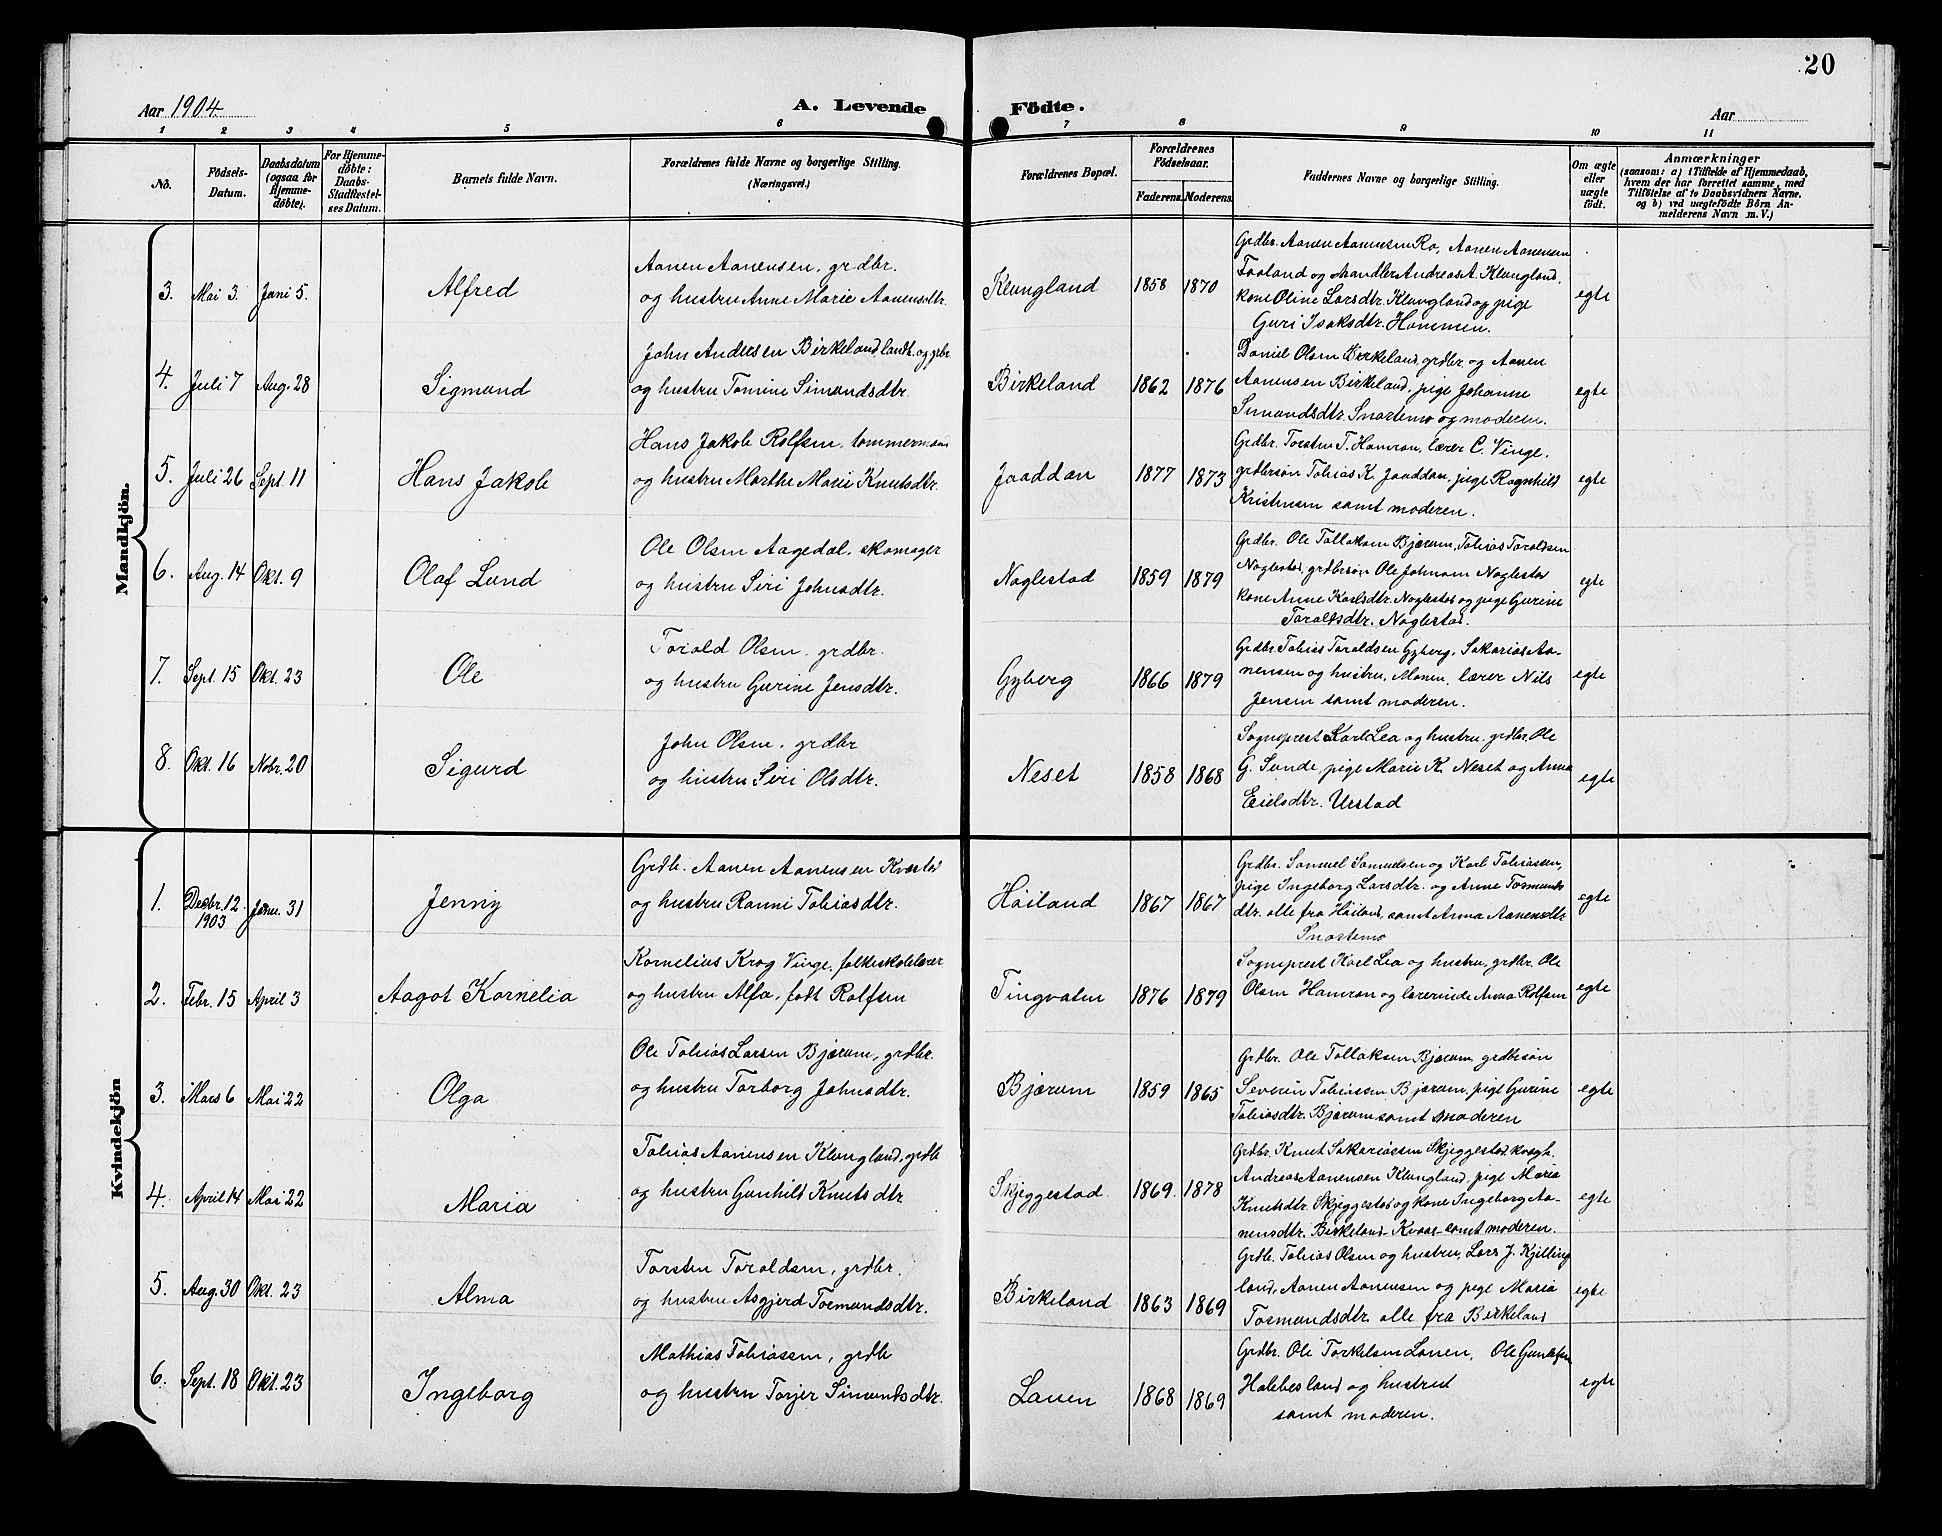 20
Aar 1904.
A. Levende Födte.
Aar
1 2 3 4 5 6 7 8 9 10 11
No.
Födsels-
Datum.
Daabsdatum
(ogsaa for
Hjemme-
döbte).
For Hjemme-
döbte:
Daabs-
Stadfæstel-
ses Datum.
Barnets fulde Navn.
Forældrenes fulde Navne og borgerlige Stilling.
(Næringsvei.)
Forældrenes Bopæl.
Forældrenes
Födselsaar.
Faderens. Moderens.
Faddernes Navne og borgerlige Stilling.
Om ægte
eller
uægte
födt.
Anmærkninger
(saasom: a) i Tilfælde af Hjemmedaab,
hvem der har forrettet samme, med
Tilföielse af to Daabsvidners Navne.
og b) ved uægtefödte Börn An-
melderens Navn m. V.)
Mandkjön.
3. Mai 3. Juni 5.
Alfred
Aanen Aanensen, grdbr.
og hustru Anne Marie Aanensdtr.
Klungland 1858 1870
Grdbr. Aanen Aanensen Ro, Aanen Aanensen
Faaland og handler Andreas A. Klungland,
kone Oline Larsdtr. Klungland og pige
Guri Isaksdtr. Hommen.
egte
4. Juli 7 Aug. 28
Sigmund
John Andersen Birkeland landh. og grbr.
og hustru Tomine Simondsdtr.
Birkeland 1862 1876
Daniel Olsen Birkeland, grdbr. og Aanen
Aanensen Birkeland, pige Johanne
Simundsdtr. Snartemo og moderen.
egte
5. Juli 26 Sept. 11
Hans Jakob
Hans Jakob Rolfsen, tommermann
og hustru Marthe Marie Knutsdtr.
Jaaddan 1877 1873
Grdbr. Torsten T. Hamran, lærer C. Vinge,
grdbrsøn Tobias K. Jaaddan, pige Ragnhild
Kristensen samt moderen.
egte
6. Aug. 14 Okt. 9
Olaf Lund
Ole Olsen Aagedal, skomager
og hustru Siri Johnsdtr.
Noglestad 1859 1879
Grdbr. Ole Tollaksen Bjærum, Tobias Taraldsen
Noglestad, grdbrsøn Ole Johnsen Noglestad
kone Anne Karlsdtr. Noglestad og pige Gurine
Taraldsdtr. Noglestad.
egte
7. Sept. 15 Okt. 23
Ole
Torald Olsen, grdbr.
og hustru Gurine Jensdtr.
Gyberg 1866 1879
Grdbr. Tobias Taraldsen Gyberg, Sakarias Aa-
nensen og hustru, Monen, lærer Nils
Jensen samt moderen.
egte
8. Okt. 16 Nobr. 20
Sigurd
John Olsen, grdbr
og hustru Siri Olsdtr.
Neset 1858 1868
Sogneprest Karl Lea og hustru, grdbr. Ole
G. Sunde, pige Marie K. Neset og Anna
Eielsdtr. Urstad
egte
Kvindekjön
1. Decbr. 12 1903 Janu. 31
Jenny
Grdb. Aanen Aanensen Kvæstad
og hustru Ranni Tobiasdtr.
Høiland 1867 1867
Grdbr. Samuel Samuelsen og Karl Tobiassen,
pige Ingeborg Larsdtr. og Anne Tormunds
dtr. alle fra Høiland, samt Anna Aanensdtr.
Snartemo
egte
2. Febr. 15 April 3
Aagot Kornelia
Kornelius Krog Vinge, folkeskolelærer
og hustru Alfa, født Rolfsen
Tingvatn 1876 1879
Sogneprest Karl Lea og hustru, grdbr. Ole
Olsen Hamran og lærerinde Anna Rolfsen
egte
3. Mars 6 Mai 22
Olga
Ole Tobias Larsen Bjærum, grdbr.
og hustru Torborg Johnsdtr.
Bjærum 1859 1865
Grdbr. Ole Tollaksen Bjærum, grdbrsøn
Severin Tobiassen Bjærum, pige Gurine
Tobiasdtr. Bjærum samt moderen
egte
4. April 14 Mai 22
Maria
Tobias Aanensen Klungland, grdb
og hustru Gunhild Knutsdtr
Skjeggestad 1869. 1878
Grdbr. Knut Sakariassen Skjeggestad, kvægh.
Andreas Aanensen Klungland, pige Maria
Knutsdtr. Skjeggestad og kone Ingeborg Aa-
nensdtr. Birkeland-Kvaas samt moderen.
egte
5. Aug. 30 Okt. 23
Alma
Torsten Toroldsen, grdbr.
og hustru Asgjerd Tormundsdtr.
Birkeland 1863 1869
Grdb. Tobias Olsen og hustru, Lars J. Kjilling
land, Aanen Aanensen og pige Maria
Tormundsdtr. alle fra Birkeland
egte
6. Sept. 18 Okt. 23
Ingeborg
Mathias Tobiassen, grdb
og hustru Torjer Simundsdtr.
Lauen 1868 1869
Grdbr. Ole Torkelsen Lauen, Ole Gunlefsen
Hallesland og hustrut
samt moderen.
egte